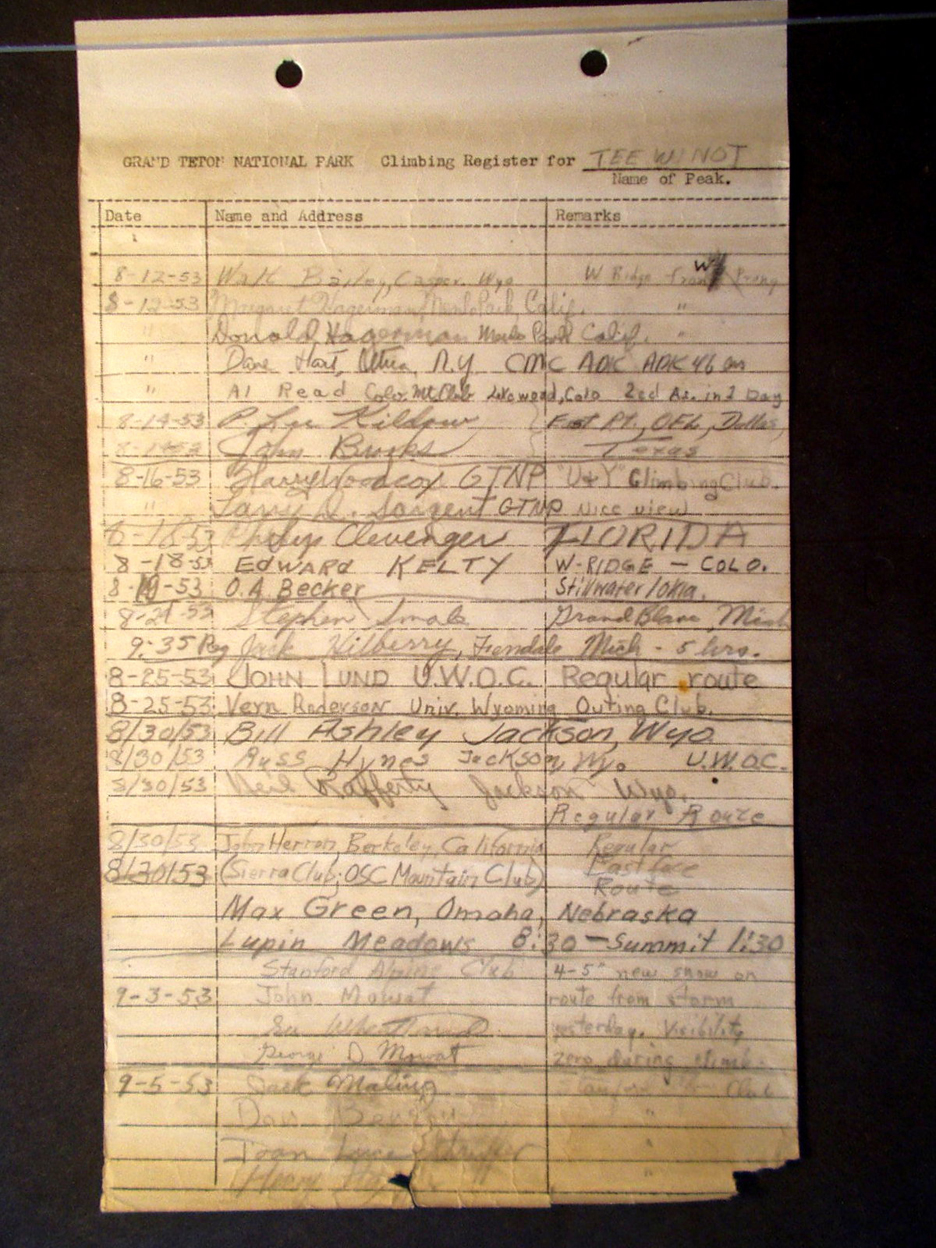 GRAND TETON NATIONAL PARK Climbing Register for TEE WINOT
Name of Peak.
Date Name and Address Remarks
8-12-53 Walt Bailey, Casper, Wyo W Ridge from W Prong
8-12-53 Margaret Hagerman, Menlo Park Calif. "
" Donald Hagerman Menlo Park Calif. "
" Dave Hart, Utica, N.Y. CMC ADK ADK 46 er
" Al Read Colo. Mt. Club Lakewood, Colo 2nd As. in 2 Day
8-14-53 P. Lee Kildow East Pt., OEL, Dallas,
John Brooks Texas
8-16-53 Harry Woodcox GTNP "U+Y" Climbing Club.
" Larry D. Sargent GTNP nice view
8-18-53 Philip Clevenger FLORIDA
8-18-53 EDWARD KELTY W-RIDGE — COLO.
8-19-53 O.A. Becker Stillwater, Okla.
8-21-53 Stephen Smale Grand Blanc, Mich
9:35 Jack Hilberry, Ferndale Mich - 5 hrs.
8-25-53 JOHN LUND U.W.O.C. Regular route
8-25-53 Vern Anderson Univ. Wyoming Outing Club.
8/30/53 Bill Ashley Jackson, Wyo
8/30/53 Russ Hynes Jackson Wyo U.W.O.C.
8/30/53 Neil Rafferty Jackson Wyo.
Regular Route
8/30/53 John Herron, Berkeley, California Regular
8/30/53 (Sierra Club; OSC Mountain Club) East face
Route
Max Green, Omaha, Nebraska
Lupin Meadows 8:30 — Summit 1:30
Stanford Alpine Club 4-5" new snow on
9-3-53 John Mowat route from storm
Sue yesterday. Visibility
George D Mowat zero during climb.
9-5-53 Jack Maling Club
Dan "
Joan "
Henry "